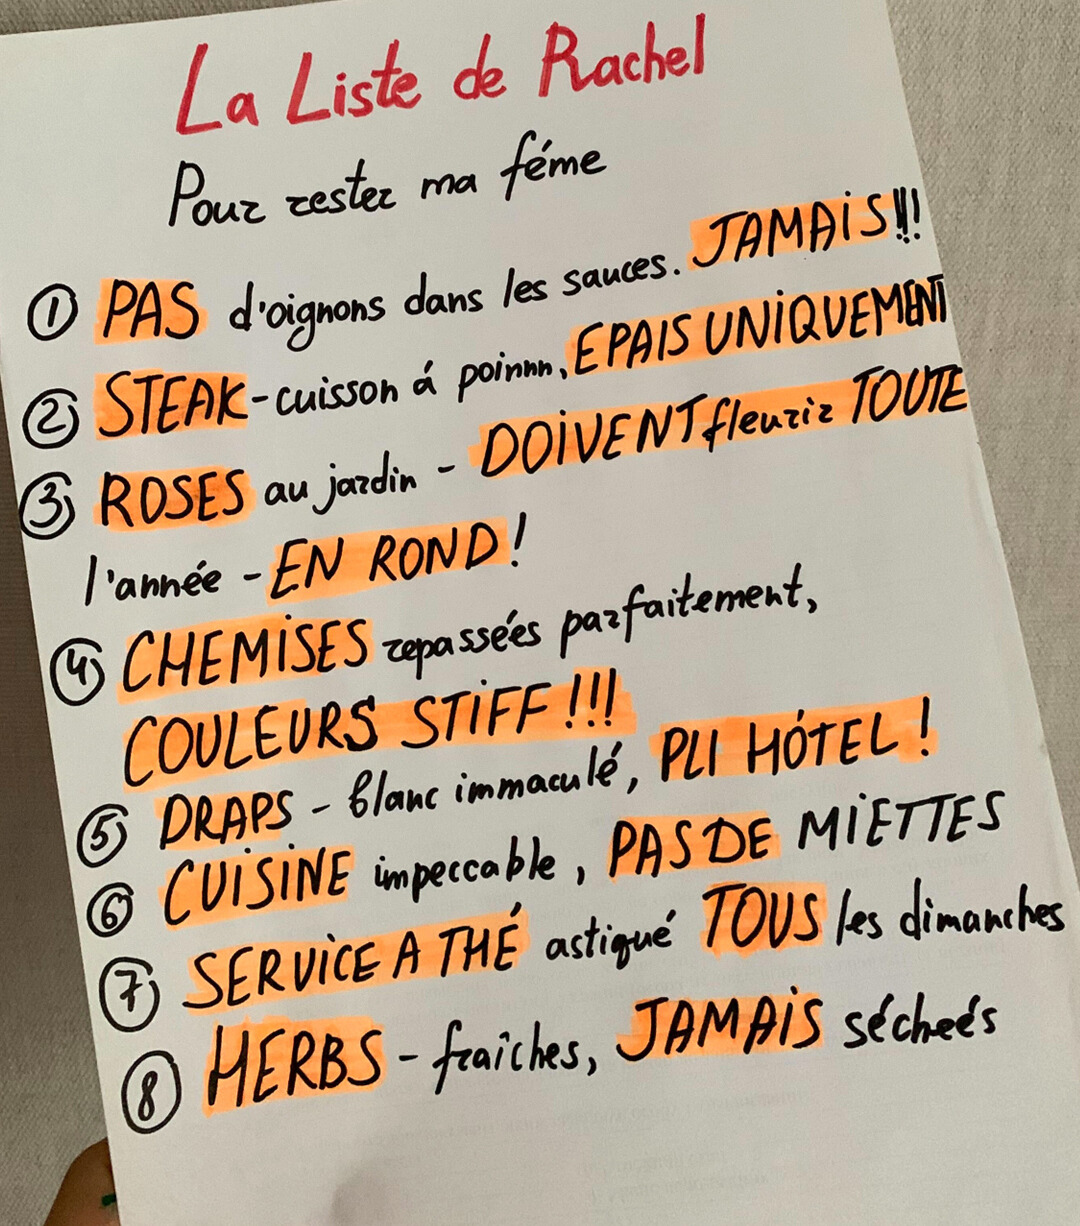 La Liste de Rachel
Pour rester ma féme
① PAS d'oignons dans les sauces. JAMAIS!!!
② STEAK - cuisson á poinnn, EPAIS UNIQUEMENT
③ ROSES au jardin - DOIVENT fleurir TOUTE
l'année - EN ROND!
④ CHEMISES repasseés parfaitement,
COULEURS STIFF!!!
⑤ DRAPS - blanc immaculé, PLI HÓTEL!
⑥ CUISINE impeccable, PAS DE MIETTES
⑦ SERVICE A THÉ astiqué TOUS les dimanches
⑧ HERBS - fraîches, JAMAIS sécheés